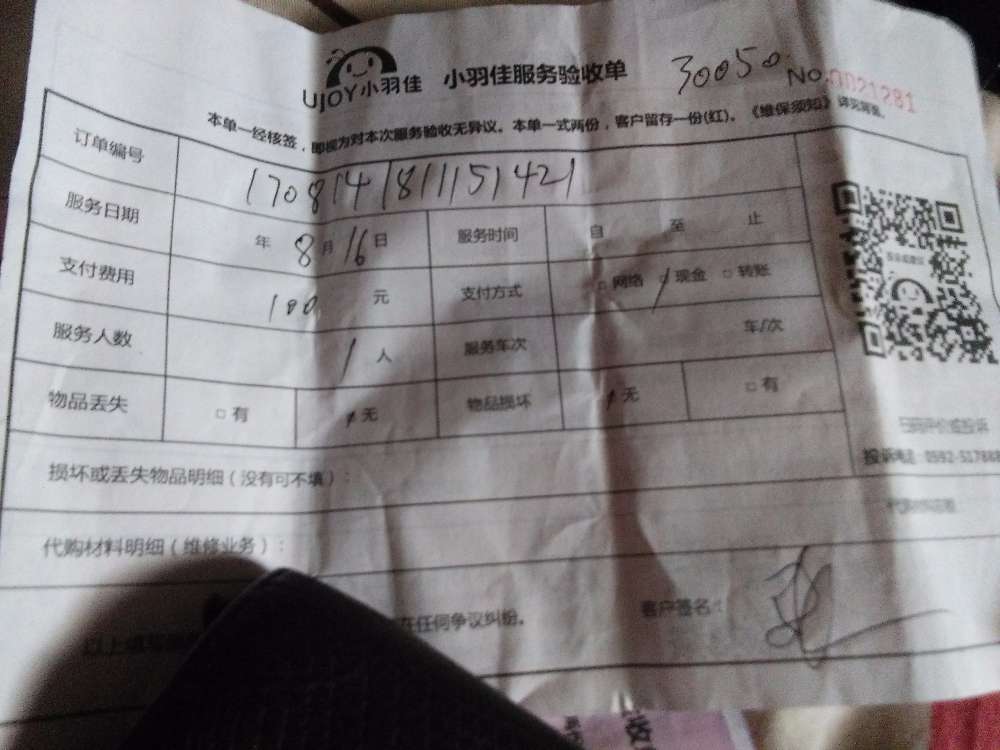 UJOY小羽佳 小羽佳服务验收单 30050 No.0021281
本单一经核签，即视为对本次服务验收无异议。本单一式两份，客户留存一份(红)。《维保须知》详见背面。
订单编号 1708141811151421
服务日期 年 8月 16日 服务时间 自 至 止
支付费用 100 元 支付方式 □网络 现金 □转账
服务人数 1 人 服务车次 车/次
物品丢失 □有 无 物品损坏 无 □有
扫码评价或投诉
投诉电话：0592-517888
损坏或丢失物品明细（没有可不填）：
代购材料明细（维修业务）：
以上填写
在任何争议纠纷。
客户签名：